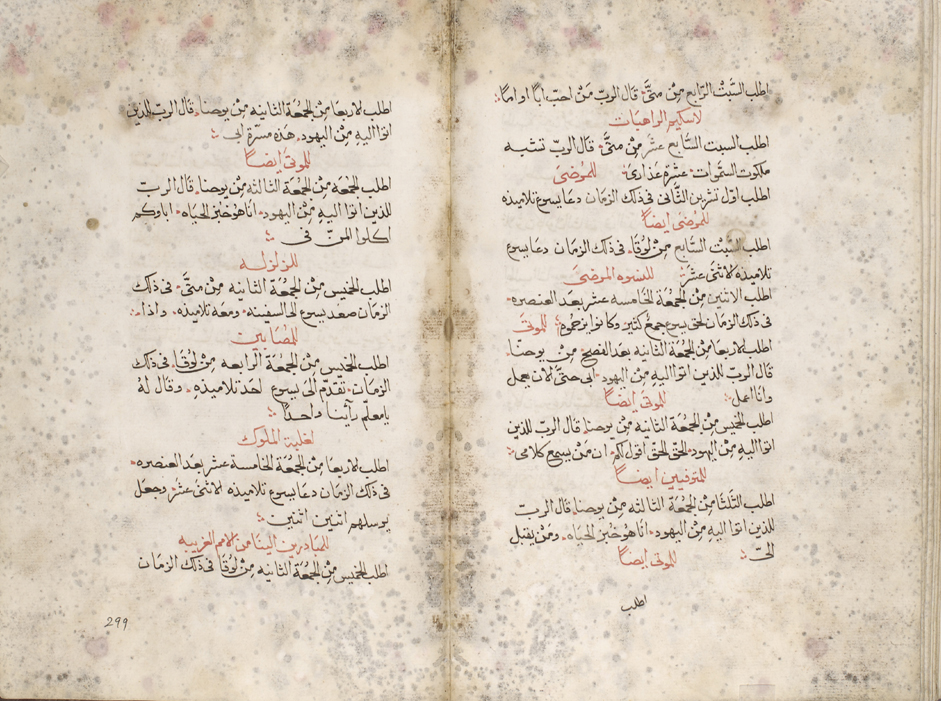 اطلب السَّبْتْ الرّابع مِنْ متىَّ٭ قال الربّ مَنْ احبّ ابًا او امًا
لاسكيم الراهبَات
اطلب السبت السَّابع عشَر مِنْ متىَّ٭ قال الربّ تشبه
ملكوت السَّموات٭ عشرة عَذارىَ للمرضىَ
اطلب اول تشرين الثَّاني في ذلك الزمَان دعَا يسوع تلاميذه
للمرضى ايضاً
اطلب السَّبْتْ السَّابع مِنْ لوُقا٭ في ذلك الزمَان دعَا يسوع
تلاميذه لاثنىَ عشَر للنسوه المرضىَ
اطلب الاثنين مِنْ الجمُعة الخَامسه عشَر بعَد العنصره٭
في ذلك الزمَان لحق يسوع جمعٌ كثير وكانوا يزحموه للموتىَ
اطلب لاربعَا مِنْ الجمُعَة الثانيه بعَد الفصح مِنْ يوحنَّا٭
قال الربّ للذين اتوا اليه مِنْ اليهود٭ ابي حتىَّ لان يعمل
وانا اعمل للموتىَ ايضاً
اطلب الخميس مِنْ الجمُعَة الثانيه مِنْ يوحنا٭ قال الربّ للذين
اتوا اليه مِنْ اليهود٭ الحق الحق اقول لكم٭ ان مَنْ يسمع كلامي
للمتوفيين ايضاً
اطلب الثلثا مِنْ الجمُعَة الثالثه مِنْ يوحنا٭ قال الربّ
للذين اتوا اليه مِنْ اليهود٭ انا هُو خبز الحيَاه٭ ومَنْ يقبل
اليّ للموتى ايضاً
اطلب
اطلب لاربعَا مِنْ الجمُعَة الثانيه مِنْ يوحنا٭ قال الربّ للذين
اتوا اليه مِنْ اليهود٭ هَذه مسرّة ابي
للموتىَ ايضاً
اطلب الجمُعَة مِنْ الجمُعَة الثالثه مِنْ يوحنا٭ قال الربّ
للذين اتوا اليه مِنْ اليهود٭ انا هُو خبز الحيَاه٭ اباوكم
اكلوا المنّ في
للزلزله
اطلب الخميس مِنْ الجمُعَة الثانيه مِنْ متىَّ٭ في ذلك
الزمَان صعد يسوع الى السفينه٭ ومعَهُ تلاميذه٭ واذا
للمُصَابين
اطلب الخميس مِنْ الجمُعَة الرابعه مِنْ لوُقا٭ في ذلك
الزمَان٭ تقدّم الىَ يسوع احَد تلاميذه٭ وقال لهُ
يا معلّم رأينا واحداً
لغلبة الملوك
اطلب لاربعَا مِنْ الجمُعَة الخامسة عشر بعَد العنصره٭
في ذلك الزمَان دعَا يسوع تلاميذه لاثنىَ عشَر وجعل
يرسلهم اثنين اثنين
للمبادرين الينَا من الامم الغريبه
اطلب الخميس مِنْ الجمُعَة الثانيه مِنْ لوُقا في ذلك الزمَان
299